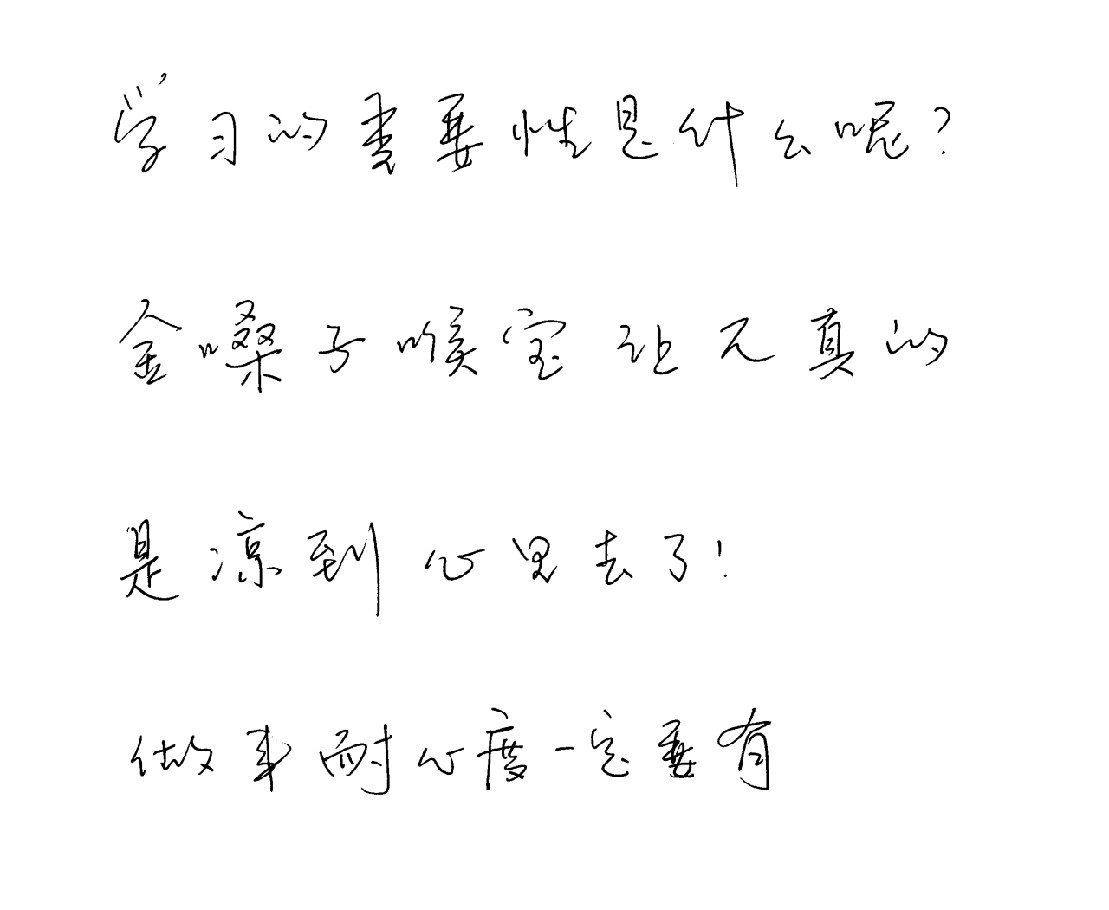 学习的重要性是什么呢?
金嗓子喉宝让兄真的
是凉到心里去了!
做事耐心度一定要有